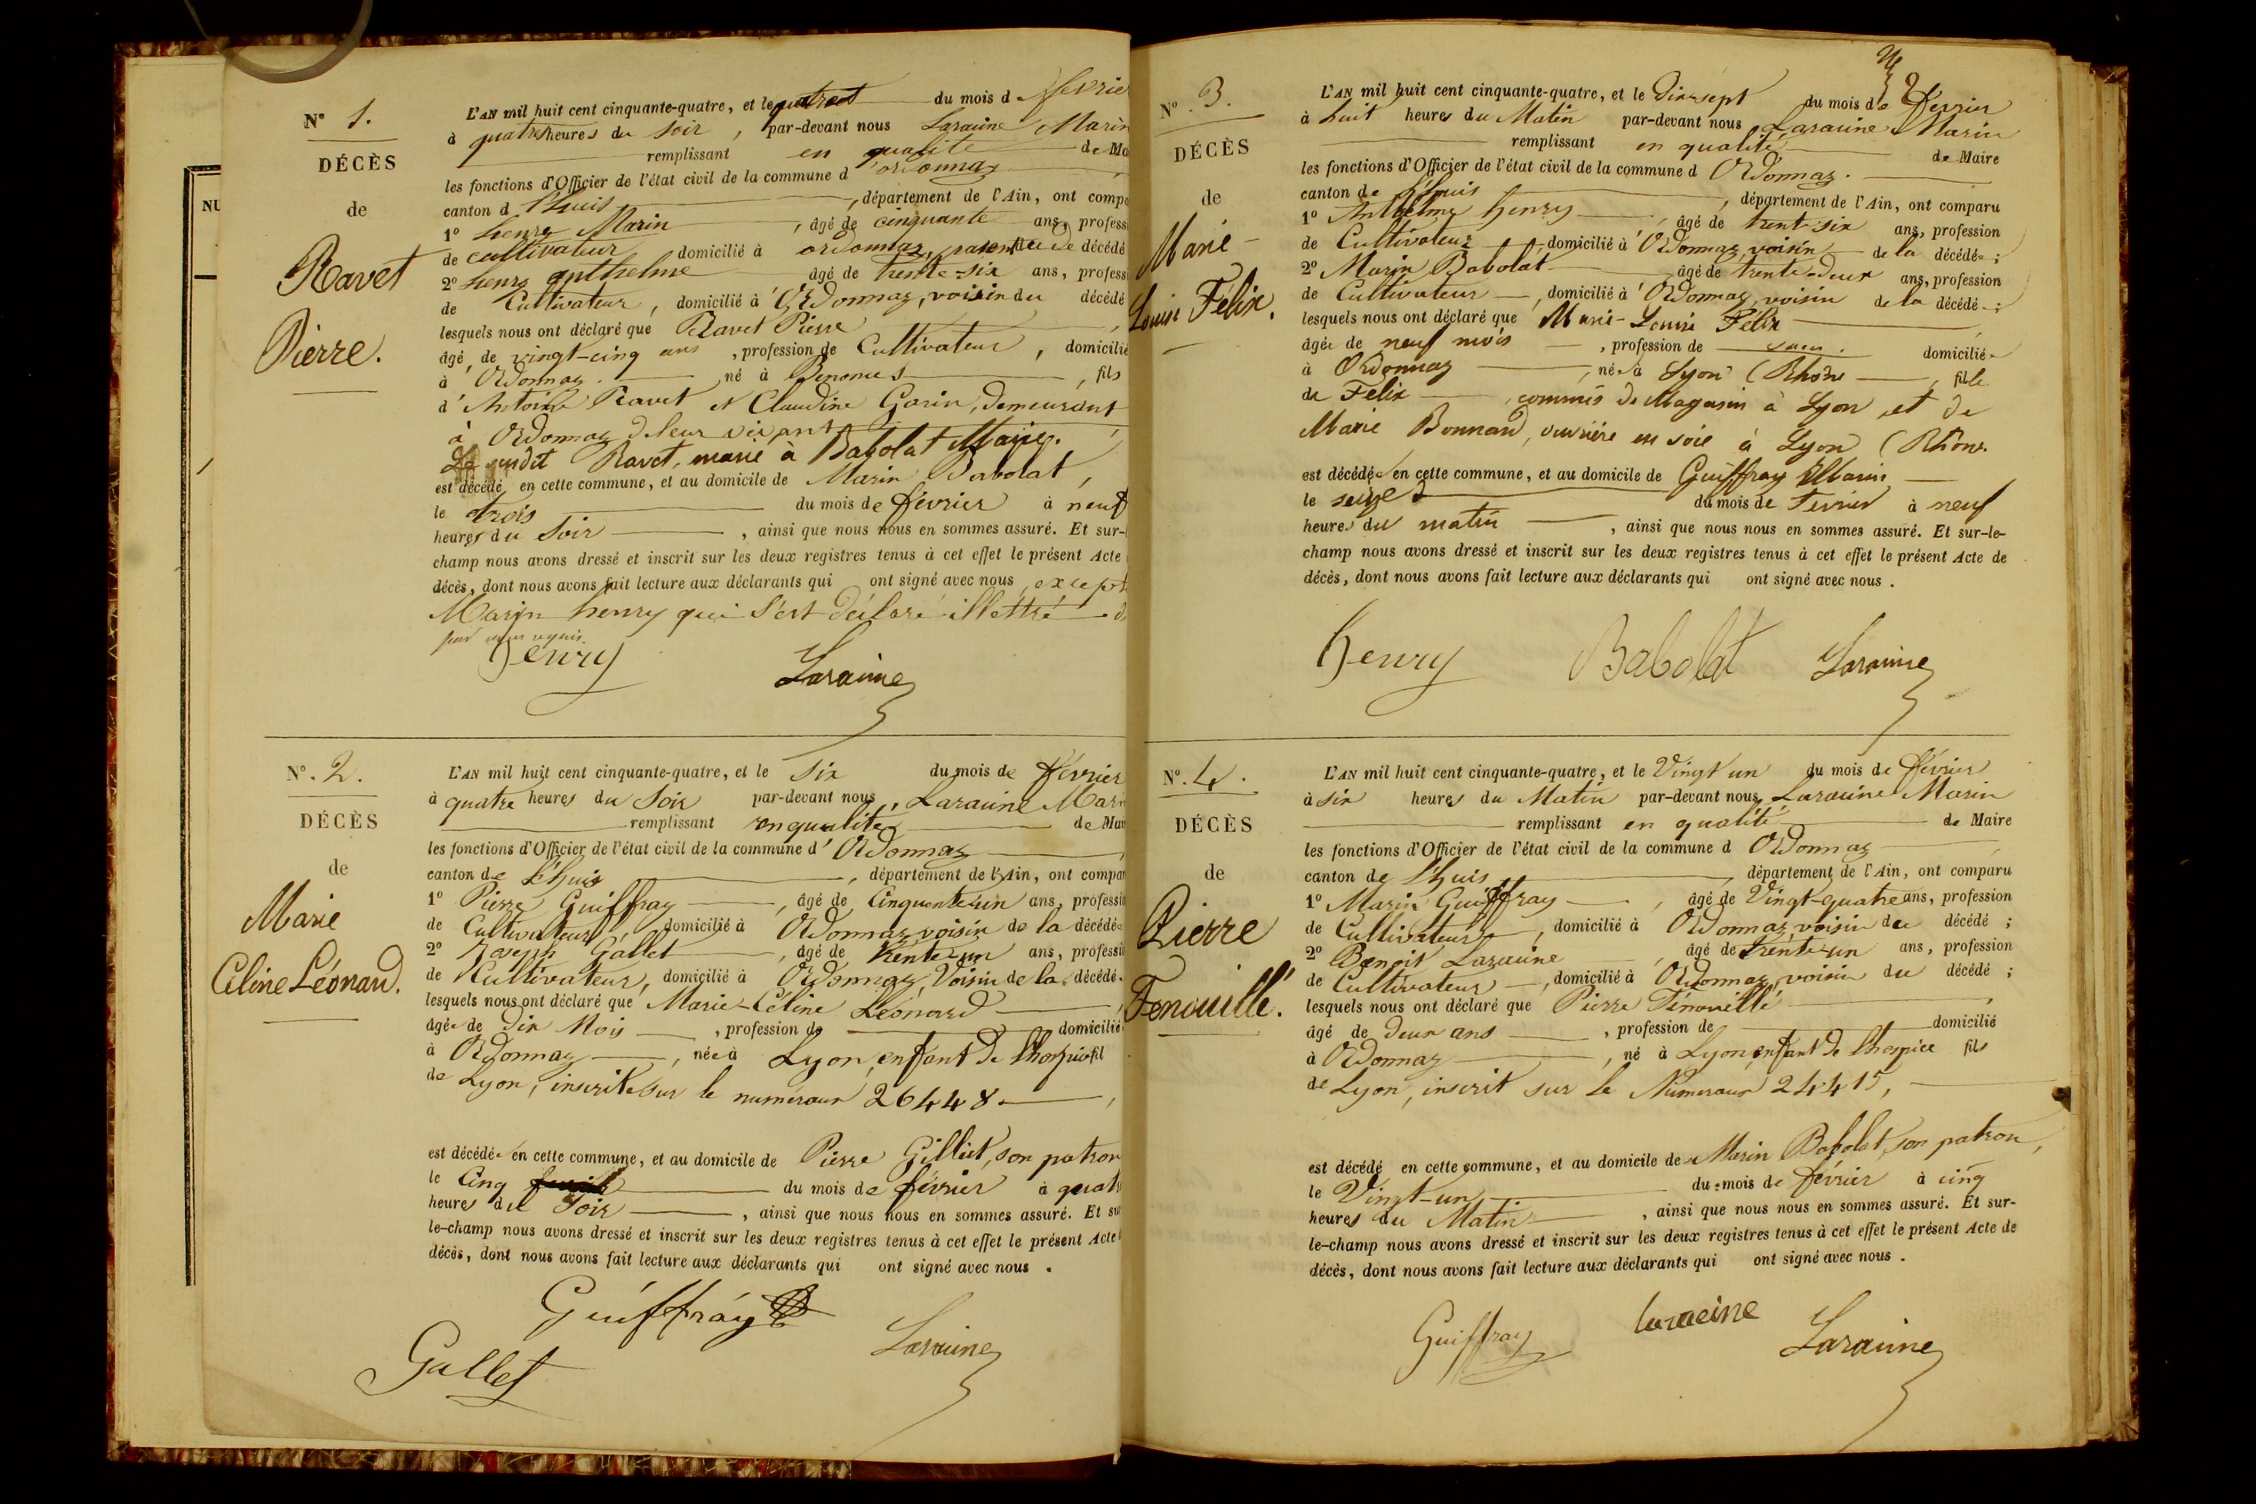 NU
N° 1.
DÉCÈS
de
Ravet
Pierre.
L'AN mil huit cent cinquante-quatre, et le quatre du mois d février
à quatre heures du soir, par-devant nous Laraine Marin
remplissant en qualité de Ma
les fonctions d'Officier de l'état civil de la commune d'ordonnaz
canton d Lhuis, département de l'Ain, ont compa
1° henry Marin, âgé de cinquante ans, profess
de cultivateur domicilié à ordonnaz, parent du décédé
2° henry anthelme âgé de trente-six ans, profess
de Cultivateur, domicilié à Ordonnaz, voisin du décédé
lesquels nous ont déclaré que Ravet Pierre,
âgé de vingt-cinq ans, profession de Cultivateur, domicilié
à Ordonnaz. né à Benonces, fils
d'Antoine Ravet et Claudine Gorin, demeurant
à Ordonnaz de leur vivant,
Le susdit Ravet, marié à Babolat Marie.
est décédé en cette commune, et au domicile de Marin Babolat,
le trois du mois de février à neuf
heures du Soir, ainsi que nous nous en sommes assuré. Et sur-
champ nous avons dressé et inscrit sur les deux registres tenus à cet effet le présent Acte
décès, dont nous avons fait lecture aux déclarants qui ont signé avec nous, except
Marin henry qui s'est déclaré illettré de
par nous requis.
henry Laraine
N°. 2.
DÉCÈS
de
Marie
Céline Léonard.
L'AN mil huit cent cinquante-quatre, et le Six du mois de février
à quatre heures du Soir par-devant nous, Laraine Marin
remplissant en qualité de Mai
les fonctions d'Officier de l'état civil de la commune d'Ordonnaz
canton de Lhuis, département de l'Ain, ont compar
1° Pierre Guiffray, âgé de Cinquante-un ans, professio
de Cultivateur, domicilié à Ordonnaz, voisin de la décédée
2° Joseph Gallet, âgé de trente-un ans, professio
de Cultivateur, domicilié à Ordonnaz, Voisin de la décédé.
lesquels nous ont déclaré que Marie-Céline Léonard,
âgée de dix Mois, profession de domicilié
à Ordonnaz, née à Lyon, enfant de l'hospice fil
de Lyon, inscrite sur le numéraux 26448,
est décédée en cette commune, et au domicile de Pierre Gilliet, son patron
le Cinq du mois de février à quatr
heures du Soir, ainsi que nous nous en sommes assuré. Et sur
le-champ nous avons dressé et inscrit sur les deux registres tenus à cet effet le présent Acte
décès, dont nous avons fait lecture aux déclarants qui ont signé avec nous.
Guiffray
Gallet Laraine
N° 3.
DÉCÈS
de
Marie-
Louise Félix.
L'AN mil huit cent cinquante-quatre, et le Dix-sept du mois de février
à huit heures du Matin par-devant nous Laraine Marin
remplissant en qualité de Maire
les fonctions d'Officier de l'état civil de la commune d Ordonnaz.
canton de Lhuis, département de l'Ain, ont comparu
1° Anthelme henry, âgé de trente-six ans, profession
de Cultivateur, domicilié à Ordonnaz, voisin de la décédée;
2° Marin Babolat âgé de trente-deux ans, profession
de Cultivateur, domicilié à Ordonnaz, voisin de la décédé;
lesquels nous ont déclaré que Marie-Louise Félix,
âgée de neuf mois, profession de sans. domiciliée
à Ordonnaz, née à Lyon (Rhône, fille
de Félix, commis de Magasin à Lyon, et de
Marie Bonnard, ouvrière en soie à Lyon (Rhône.
est décédée en cette commune, et au domicile de Guiffray Marin
le seize du mois de Février à neuf
heures du matin, ainsi que nous nous en sommes assuré. Et sur-le-
champ nous avons dressé et inscrit sur les deux registres tenus à cet effet le présent Acte de
décès, dont nous avons fait lecture aux déclarants qui ont signé avec nous.
henry Babolat Laraine
N°. 4.
DÉCÈS
de
Pierre
Fenouillé.
L'AN mil huit cent cinquante-quatre, et le Vingt un du mois de février
à six heures du Matin par-devant nous, Laraine Marin
remplissant en qualité de Maire
les fonctions d'Officier de l'état civil de la commune d Ordonnaz,
canton de Lhuis, département de l'Ain, ont comparu
1° Marin Guiffray, âgé de Vingt-quatre ans, profession
de Cultivateur, domicilié à Ordonnaz, voisin du décédé;
2° Benoit Laraine, âgé de trente-un ans, profession
de Cultivateur, domicilié à Ordonnaz, voisin du décédé;
lesquels nous ont déclaré que Pierre Fénouillé,
âgé de deux ans, profession de domicilié
à Ordonnaz, né à Lyon, enfant de l'hospice fils
de Lyon, inscrit sur le Numéraux 24415,
est décédé en cette commune, et au domicile de Marin Babolat, son patron,
le Vingt-un du mois de février à cinq
heures du Matin, ainsi que nous nous en sommes assuré. Et sur-
le-champ nous avons dressé et inscrit sur les deux registres tenus à cet effet le présent Acte de
décès, dont nous avons fait lecture aux déclarants qui ont signé avec nous.
Guiffray laraine Laraine